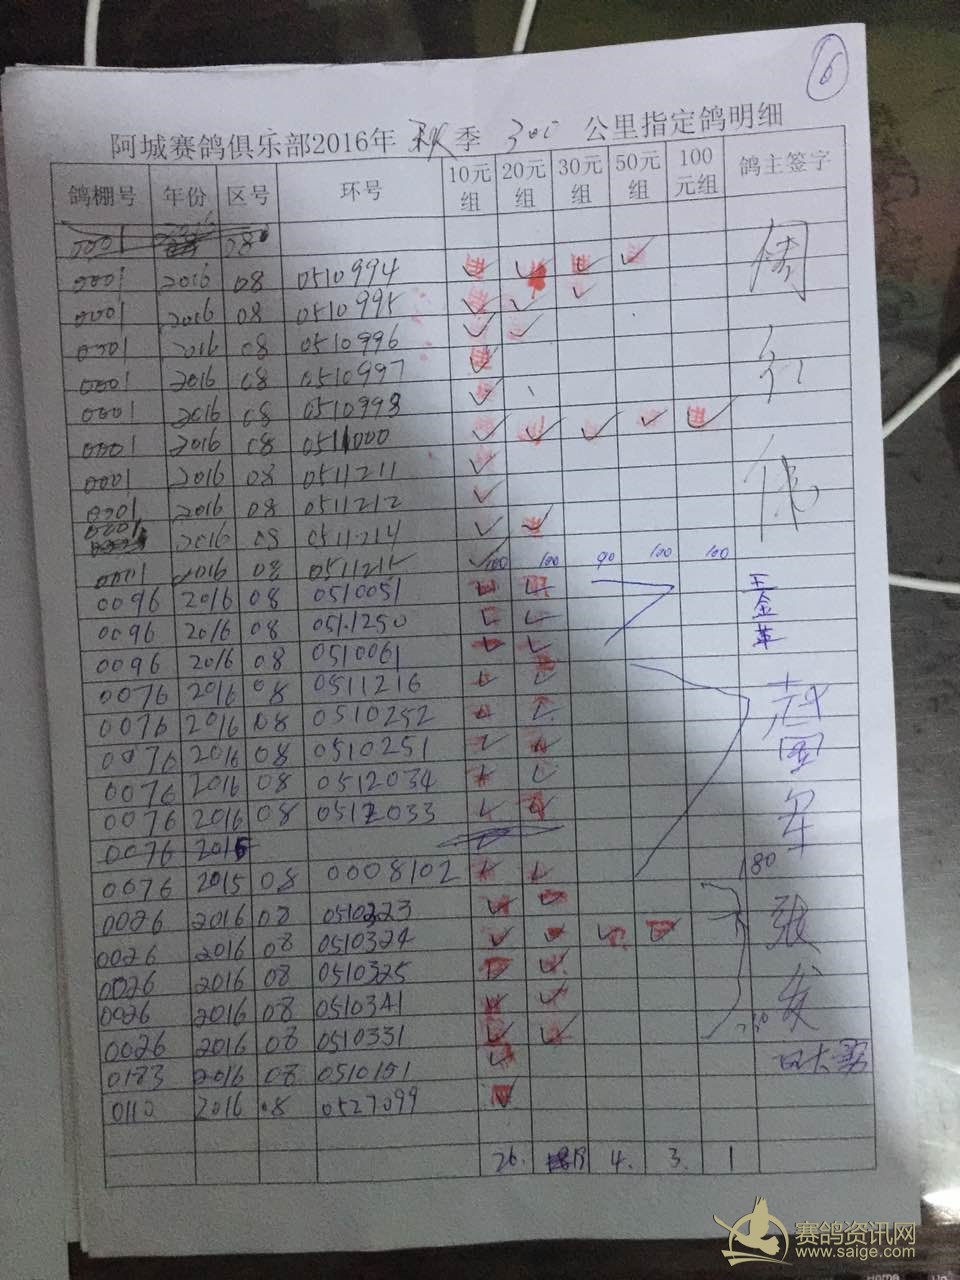 6
阿城赛鸽俱乐部2016年 秋 季 300 公里指定鸽明细
鸽棚号 年份 区号 环号 10元组 20元组 30元组 50元组 100元组 鸽主签字
0001 08
0001 2016 08 0510994 ✓ ✓ ✓ ✓
0001 2016 08 0510995 ✓ ✓ ✓
0001 2016 08 0510996 ✓ ✓
0001 2016 08 0510997 ✓
0001 2016 08 0510998 ✓
0001 2016 08 0511000 ✓ ✓ ✓ ✓ ✓
0001 2016 08 0511211 ✓
0001 2016 08 0511212 ✓
0001 2016 08 0511214 ✓ ✓
0001 2016 08 0511215 ✓ 100 100 90 100 100
0096 2016 08 0510051 王金革
0096 2016 08 0511250
0096 2016 08 0510061
0076 2016 08 0511216
0076 2016 08 0510252
0076 2016 08 0510251
0076 2016 08 0512034
0076 2016 08 0512033
0076 2015
0076 2015 08 0008102
180
0026 2016 08 0510323
0026 2016 08 0510324
0026 2016 08 0510325
0026 2016 08 0510341
0026 2016 08 0510331
0183 2016 08 0510151
0110 2016 08 0527099
26. 19 4. 3. 1
赛鸽资讯网
www.saige.com